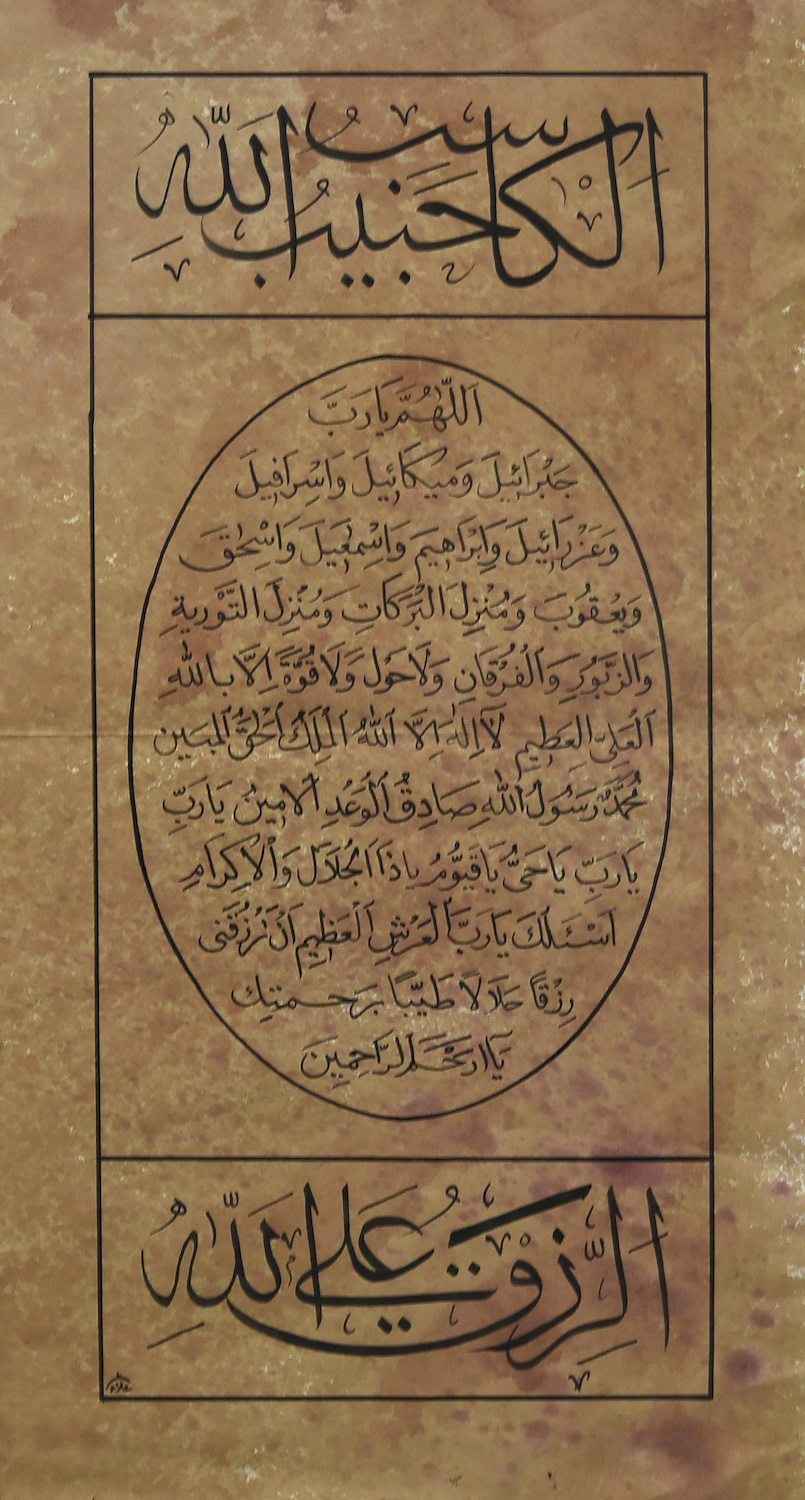 الكاسب حبيب الله
اَللّٰهُمَّ يَارَبَّ
جَبْرَائِيلَ وَمِيكَائِيلَ وَاِسْرَافِيلَ
وَعَزْرَائِيلَ وَاِبْرَاهِيمَ وَاِسْمٰعِيلَ وَاِسْحٰقَ
وَيَعْقُوبَ وَمُنْزِلَ الْبَرَكَاتِ وَمُنْزِلَ التَّوْرٰيةِ
وَالزَّبُورِ وَالْفُرْقَانِ وَلَاحَوْلَ وَلَاقُوَّةَ اِلَّا بِاللّٰهِ
اَلْعَلِىِّ الْعَظِيمِ لَآاِلٰهَ اِلَّا اَللّٰهُ الْمَلِكُ الْحَقُّ الْمُبِين
مُحَمَّدٌ رَسُولُ اللّٰهِ صَادِقُ الْوَعْدِ الْاَمِينُ يَارَبِّ
يَارَبِّ يَاحَىُّ يَاقَيُّومُ يَاذَا الْجَلَالِ وَالْاِكْرَامِ
اَسْئَلُكَ يَارَبَّ الْعَرْشِ الْعَظِيمِ اَنْ تَرْزُقَنِى
رِزْقًا حَلَالًا طَيِّبًا بِرَحْمَتِكَ
يَااَرْحَمَ الرَّاحِمِينَ
الرِّزق على الله